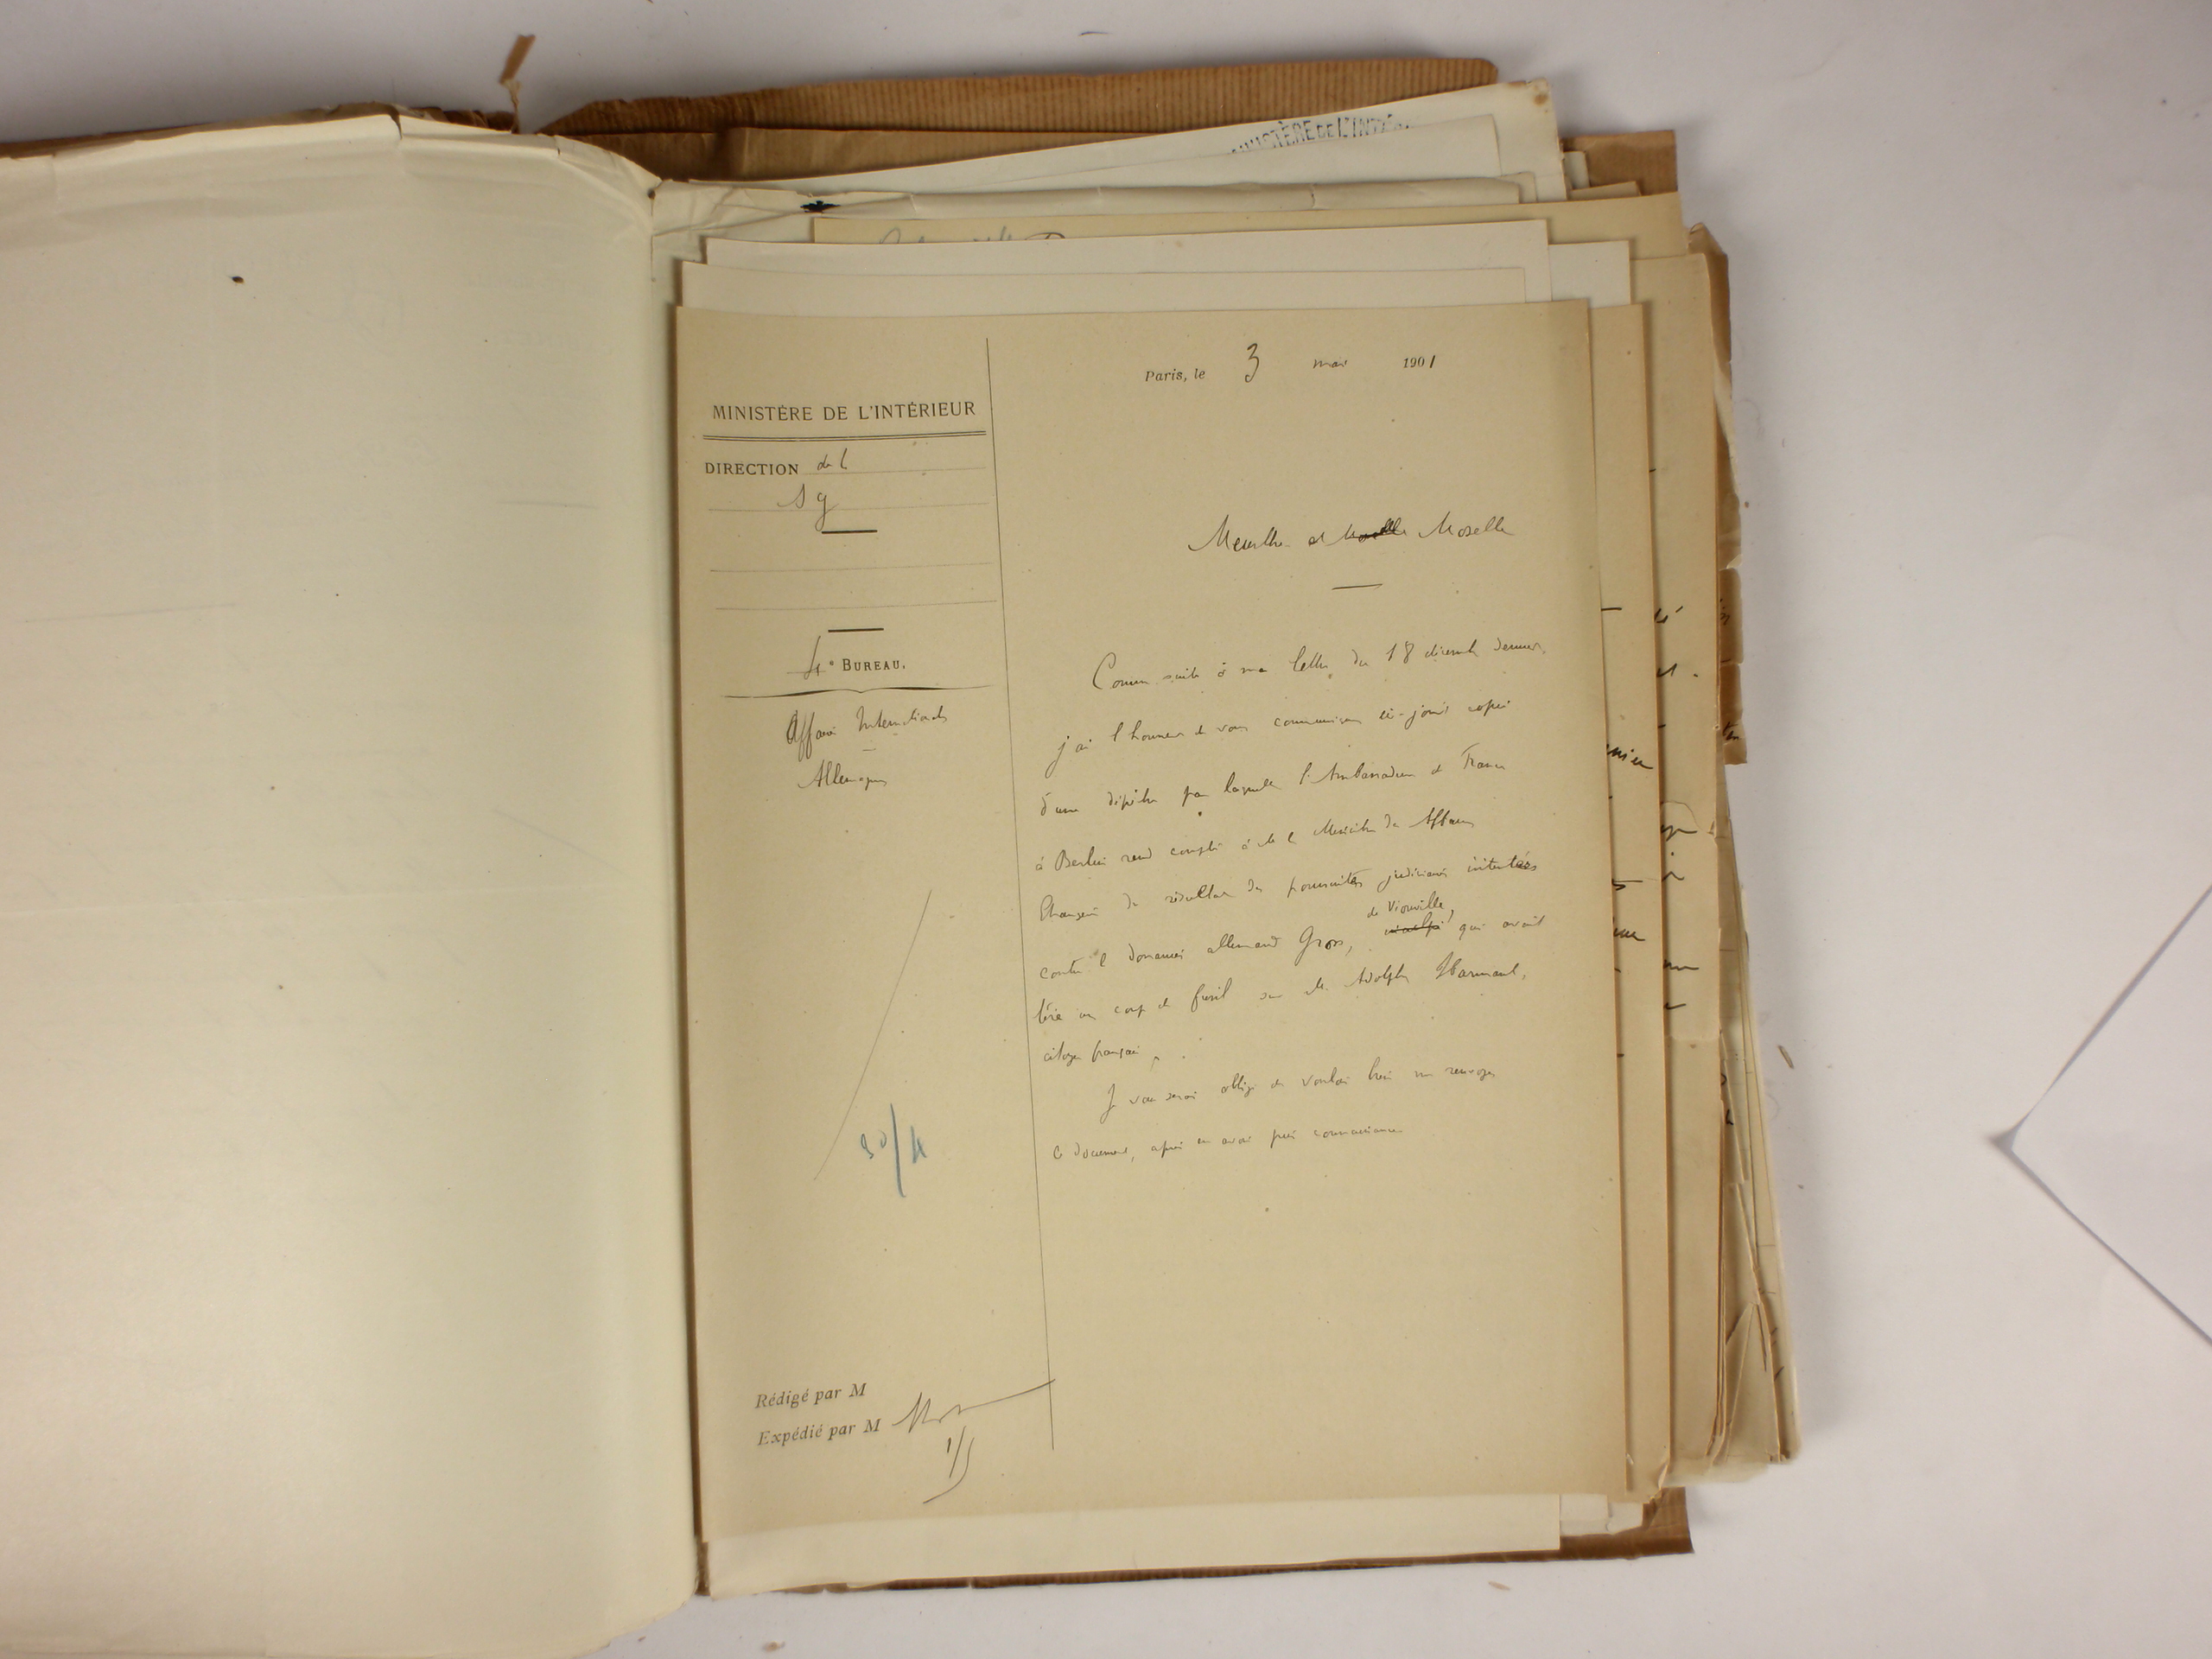 MINISTÈRE DE L'INT
Paris, le 3 mai 1901
MINISTÈRE DE L'INTÉRIEUR
DIRECTION de l
Sg
4e BUREAU.
Affaires Internationales
Allemagne
Meurthe et Moselle Moselle
Comme suite à ma lettre du 18 décembre dernier,
j'ai l'honneur de vous communiquer ci-joint copie
d'une dépêche par laquelle l'Ambassadeur de France
à Berlin rend compte à M. le Ministre des Affaires
Etrangères du résultat des poursuites judiciaires intentées
de Vionville,
contre le douanier allemand Gross, inculpé qui avait
tiré un coup de fusil sur M. Adolphe Harmant,
citoyen français.
Je vous serai obligé de vouloir bien me renvoyer
ce document, après en avoir pris connaissance
30/4
Rédigé par M
Expédié par M
1/5